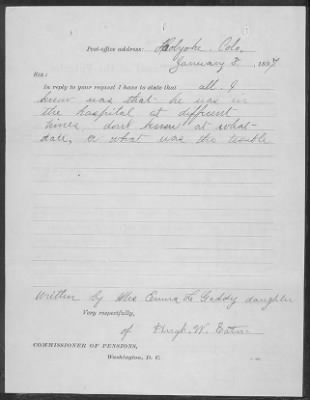 Post-office address: Holyoke Colo,
January 3, 1897
SIR:
In reply to your request I have to state that all I
know was that he was in
the hospital at different
times don't know at what
date, or what was the trouble
Written by Mrs Emma L Gaddy daughter
Very respectfully,
of Hugh. W. Eaton
COMMISSIONER OF PENSIONS,
Washington, D. C.